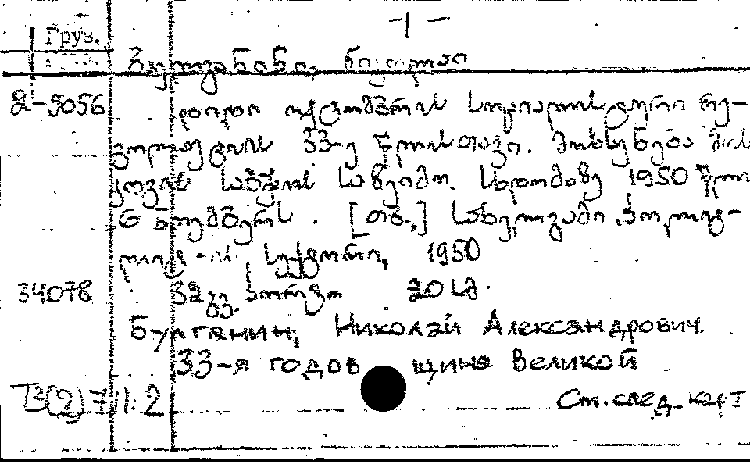 - 1 -
Груз.
ბულგანინი, ნიკოლაი
2-9056 დიდი ოქტომბრის სოციალისტური რე-
ვოლუციის 33-ე წლისთავი. მოხსენება მოს-
კოვის საბჭოს საზეიმო. სხდომაზე 1950 წლი
6 ნოემბერს. [თბ.,] სახელგამი, პოლიგ-
სექტორი, 1950
34078 32 გვ. პორტ. 20სმ.
Булганин, Николай Александрович.
33-я годов щина Великой
ТЗ(2)711.2 См. след. карт